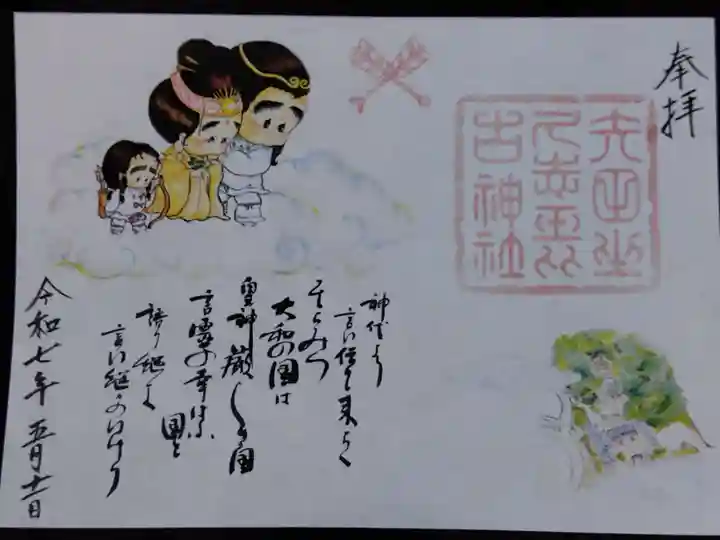 奉拝
矢田坐
久志玉比
古神社
神代より
言い伝て来らく
そらみつ
大和の国は
皇神の厳しき国
言霊の幸はふ
国と
語り継き
言い継かひけり
令和七年 五月十一日